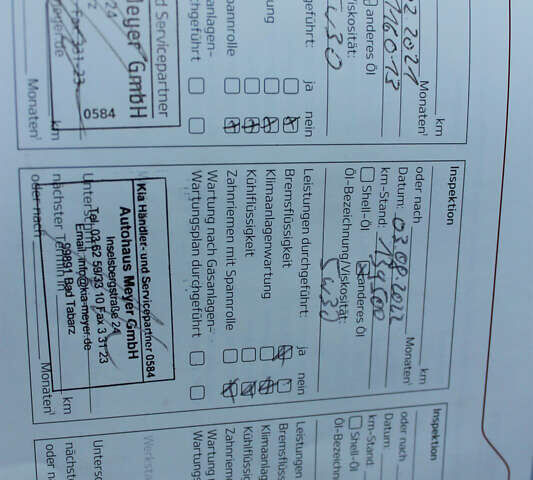 km
Monaten¹
02.2021
116013
anderes Öl
Viskosität:
W30
geführt: ja nein
wartung
Spannrolle
sanlagen-
chgeführt
d Servicepartner
0584
Meyer GmbH
24
Fax 3 31 23
meyer.de
km
Monaten¹
Inspektion
oder nach km
Datum: 03.08.2022 Monaten¹
km-Stand: 134500
Shell-Öl anderes Öl
Öl-Bezeichnung/Viskosität:
5W30
Leistungen durchgeführt: ja nein
Bremsflüssigkeit
Klimaanlagenwartung
Kühlflüssigkeit
Zahnriemen mit Spannrolle
Wartung nach Gasanlagen-
Wartungsplan durchgeführt
Kia Händler- und Servicepartner 0584
Autohaus Meyer GmbH
Inselsbergstraße 24
Tel. 03 62 59/33 10 Fax 3 31 23
Email: info@kia-meyer.de
99891 Bad Tabarz
Unter
nächster Termin in km
oder nach Monaten¹
Inspektion
oder nach
Datum:
km-Stand:
Shell-Öl
Öl-Bezeichn
Leistungen
Bremsflüss
Klimaanlag
Kühlflüssig
Zahnrieme
Wartung n
Wartungs
Werksta
Untersc
nächste
oder n